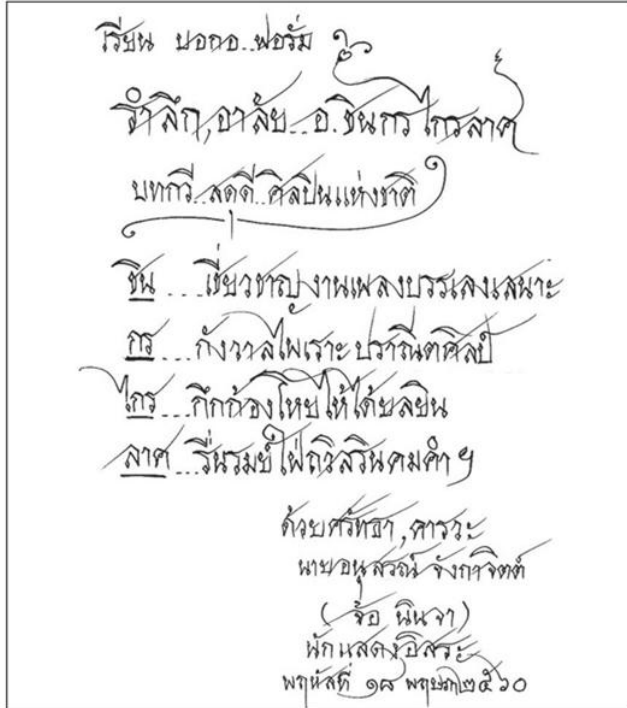 เรียน บอกอ..ฟอรั่ม
รำลึก,อาลัย..อ.ชินกร ไกรลาศ
บทกวี..สดุดี..ศิลปินแห่งชาติ
ชิน....เชี่ยวชาญงานเพลงบรรเลงเสนาะ
กร....กังวาลไพเราะปราณีตศิลป์
ไกร....กึกก้องโหยไห้ได้ยลยิน
ลาศ...รื่นรมย์ใฝ่ถวิลรินคมคำฯ
ด้วยศรัทธา,คารวะ
นายอนุสรณ์ จังกาจิตต์
(จ้อ นินจา)
นักแสดงอิสระ
พฤหัสที่ ๑๘ พฤษภา๒๕๖๐